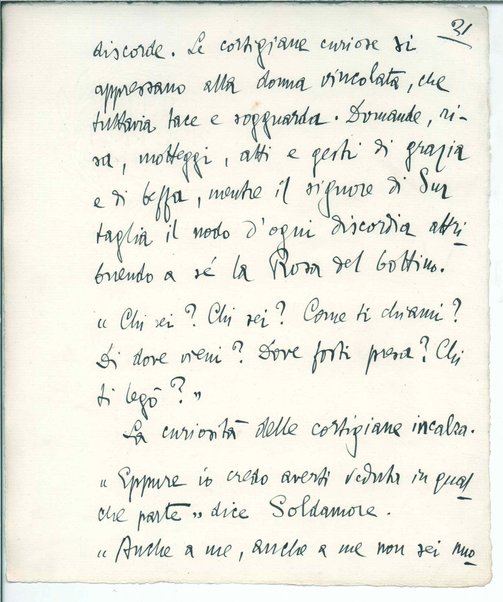 31
discorde. Le cortigiane curiose si
appressano alla donna vincolata, che
tuttavia tace e sogguarda. Domande, ri-
sa, motteggi, atti e gesti di grazia
e di beffa, mentre il signore di Sur
taglia il nodo d'ogni discordia attri
buendo a sé la Rosa del bottino.
"Chi sei? Chi sei? Come ti chiami?
Di dove vieni? Dove fosti presa? Chi
ti legò?"
La curiosità delle cortigiane incalza.
"Eppure io credo averti veduta in qual
che parte" dice Soldamore.
"Anche a me, anche a me non sei nuo